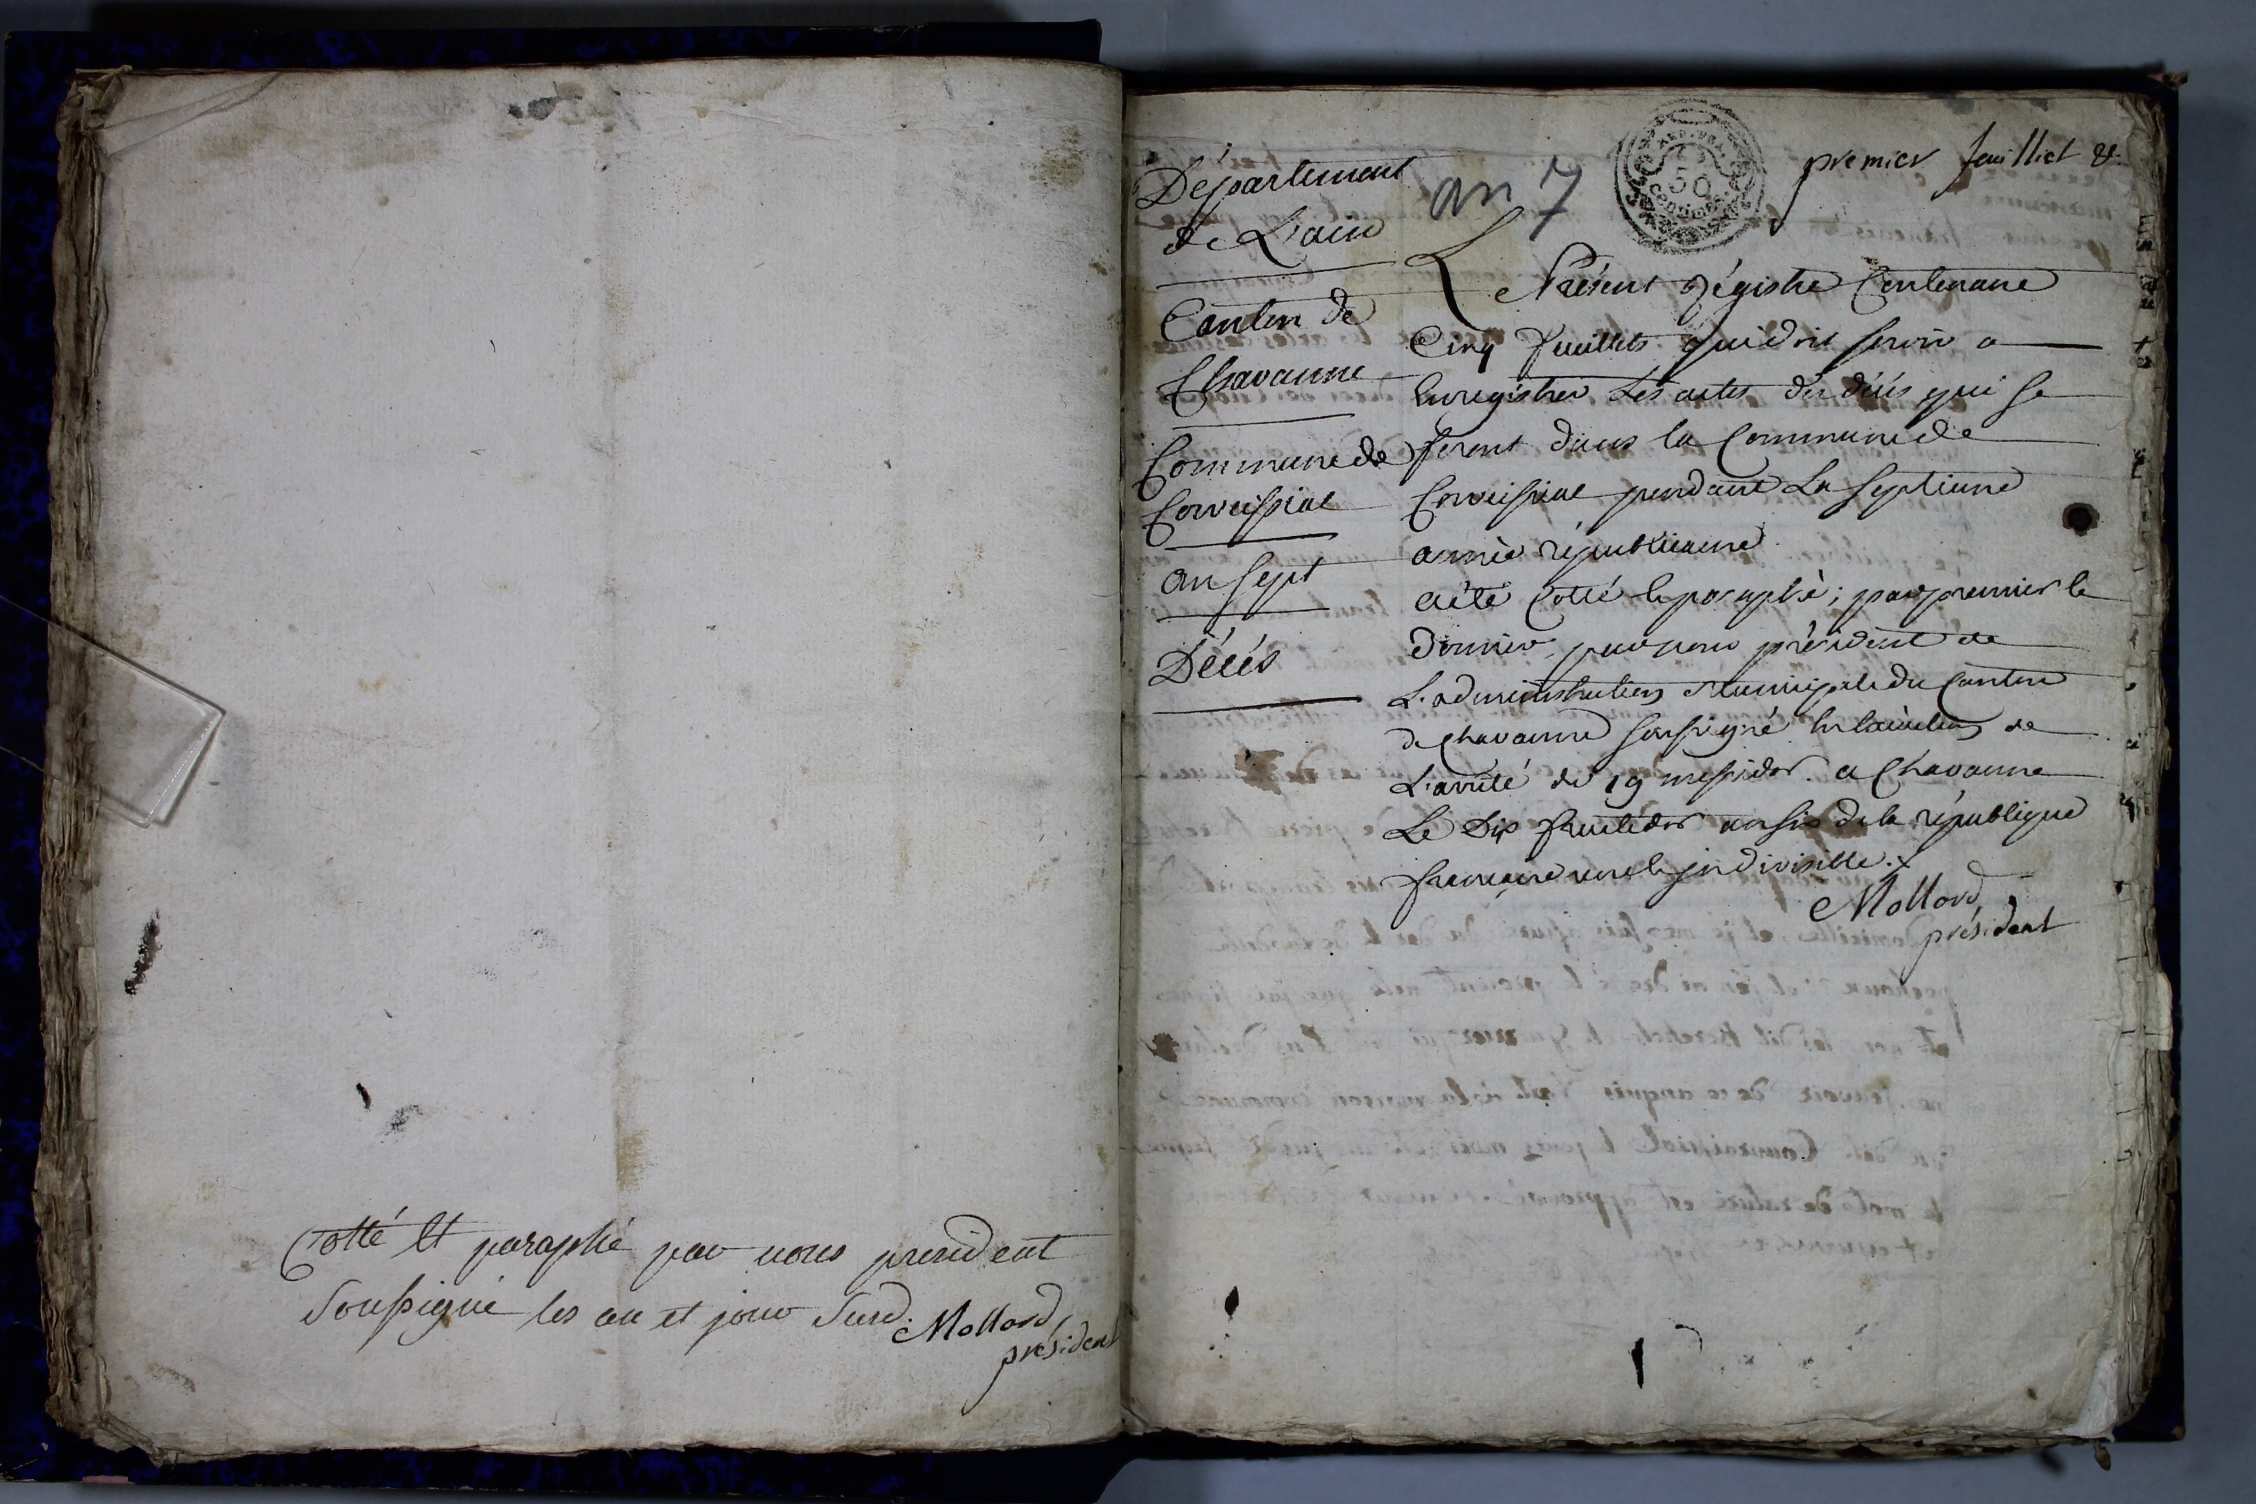 Cotté et paraphé par nous president
Soussigné les an et jour Susd.
Mollard
président
premier feuillet
an 7
50
Centimes
Département
de L'ain
Canton de
Chavanne
Commune de
Corveissial
an Sept
Décés
Le Présent régistre Contenant
Cinq feuillets qui doit servir a
Enregistrer Les actes de décés qui se
feront dans la Commune de
Corveissial pendant La septieme
année républicaine
a été Cotté et paraphé, par premier et
dernier, par nous président de
L'administration Municipale du Canton
de Chavanne soussigné en exécution de
L'arrêté du 19 messidor. a Chavanne
Le dix fructidor an six de la république
francaise une et indivisible.
Mollard
président